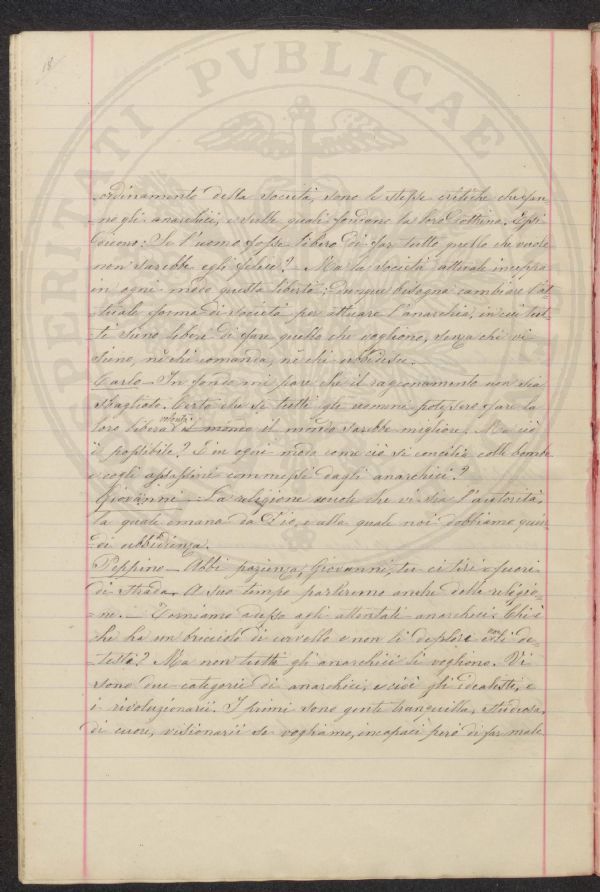 18
PERITATI PVBLICAE
ordinamento della società, sono le stesse critiche che fan-
-no gli anarchici, e sulle quali fondano la loro dottrina. Essi
dicono: Se l'uomo fosse libero di far tutto quello che vuole
non sarebbe egli felice? Ma la società attuale inceppa
in ogni modo questa libertà; dunque bisogna cambiare l'at-
-tuale forma di società per attuare l'anarchia, in cui tut-
-ti sieno liberi di fare quello che vogliono, senza che vi
sieno, nè chi comanda, nè chi ubbidisce.
Carlo - In fondo mi pare che il ragionamento non sia
sbagliato. Certo che se tutti gli uomini potessero fare la
loro libera volontà il mondo sarebbe migliore. Ma ciò
è possibile? E in ogni modo come ciò si concilia colle bombe
e cogli assassinî commessi dagli anarchici?
Giovanni - La religione vuole che vi sia l'autorità,
la quale emana da Dio, e alla quale noi dobbiamo quin-
di ubbidienza.
Peppino - Abbi pazienza, Giovanni, tu ci tiri fuori
di strada. A suo tempo parleremo anche della religio-
-ne. - Torniamo adesso agli attentati anarchici. Chi è
che ha un briciolo di cervello e non li deplori e non li de-
testi? Ma non tutti gli anarchici li vogliono. Vi
sono due categorie di anarchici, e cioè gli idealisti, e
i rivoluzionarii. I primi sono gente tranquilla, studiosa,
di cuore, visionarii se vogliamo, incapaci però di far male